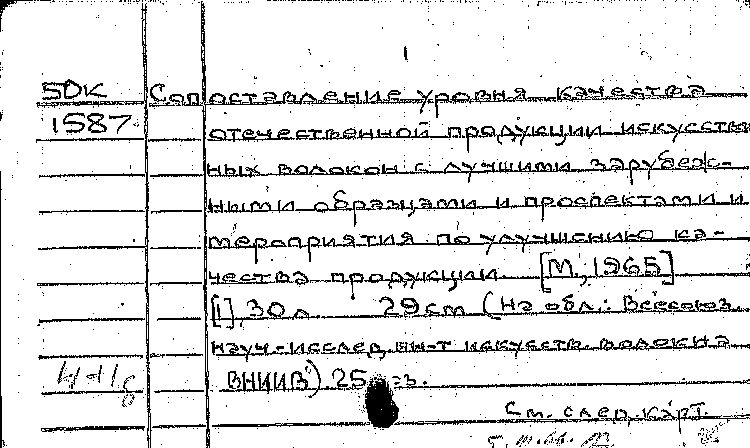 5DK Сопоставление уровня качества
1587 отечественной продукции искусствен
ных волокон с лучшими зарубеж-
ными образцами и проспектами и
мероприятия по улучшению ка-
чества продукции. [М., 1965]
[1], 30 л. 29 см (На обл.: Всесоюз.
науч.-исслед. ин-т искусств. волокна
ВНИИВ) 25 экз.
См. след. карт.